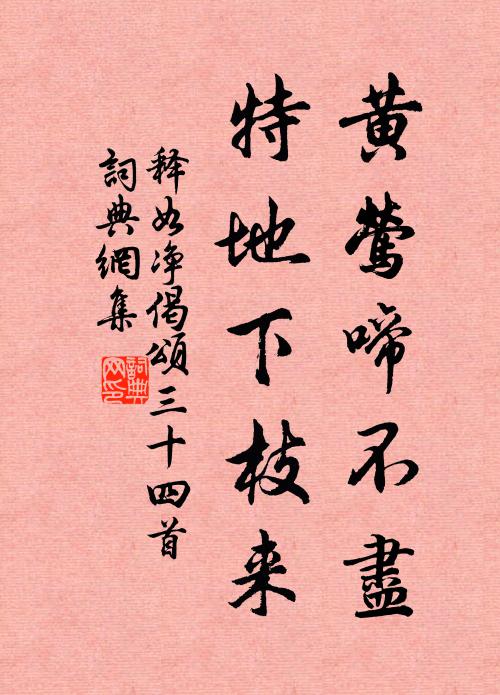 黄鶯啼不盡
特地下枝来
释如净偈頌三十四首
詞典網集
詞典网印